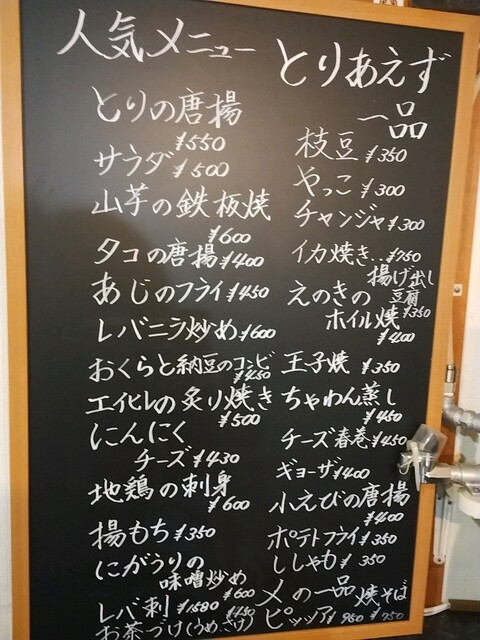 人気メニュー
とりの唐揚
¥550
サラダ ¥500
山芋の鉄板焼
¥600
タコの唐揚 ¥400
あじのフライ ¥450
レバニラ炒め ¥600
おくらと納豆のコンビ
¥450
エイヒレの炙り焼き
¥500
にんにく
チーズ ¥430
地鶏の刺身
¥600
揚もち ¥350
にがうりの
味噌炒め
¥600
レバ刺 ¥1580
¥450
お茶づけ(うめ、さけ)
とりあえず
一品
枝豆 ¥350
やっこ ¥300
チャンジャ ¥300
イカ焼き‥¥750
揚げ出し
豆腐
¥350
えのきの
ホイル焼
¥400
玉子焼 ¥350
ちゃわん蒸し
¥450
チーズ春巻 ¥450
ギョーザ ¥400
小えびの唐揚
¥400
ポテトフライ ¥350
ししゃも ¥350
〆の一品
焼そば
¥750
ピッツア ¥950